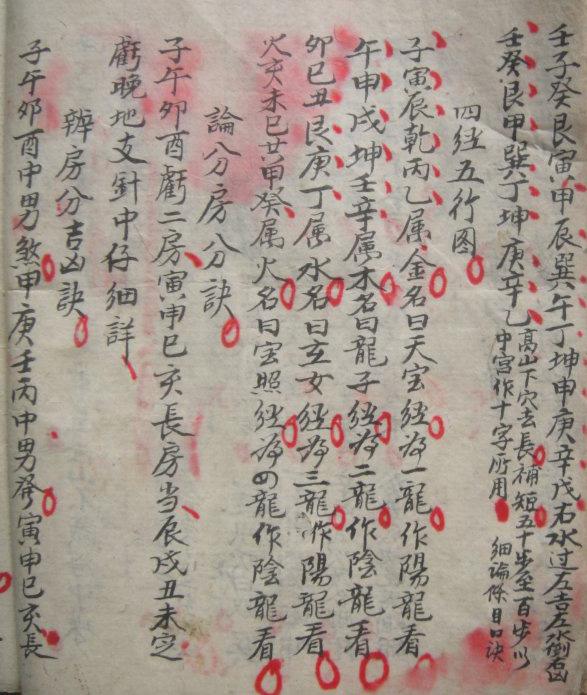 壬子癸艮寅甲辰巽午丁坤申庚辛戌右水过左吉左水倒右凶
壬癸艮甲巽丁坤庚辛乙
高山下穴去長補短五十步至百步以
中宫作十字所用 細論條目口訣
四經五行图
子寅辰乾丙乙属金名曰天宝經為一龍作陽龍看
午申戌坤壬辛属木名曰龍子經為二龍作陰龍看
卯巳丑艮庚丁属水名曰玄女經為三龍作陽龍看
火亥未巳廿甲癸属火名曰宝照經為四龍作陰龍看
論分房分訣
子午卯酉虧二房寅申巳亥長房当辰戌丑未定
虧晚地支針中仔細詳
辨房分吉凶訣
子午卯酉中男煞甲庚壬丙中男發寅申巳亥長